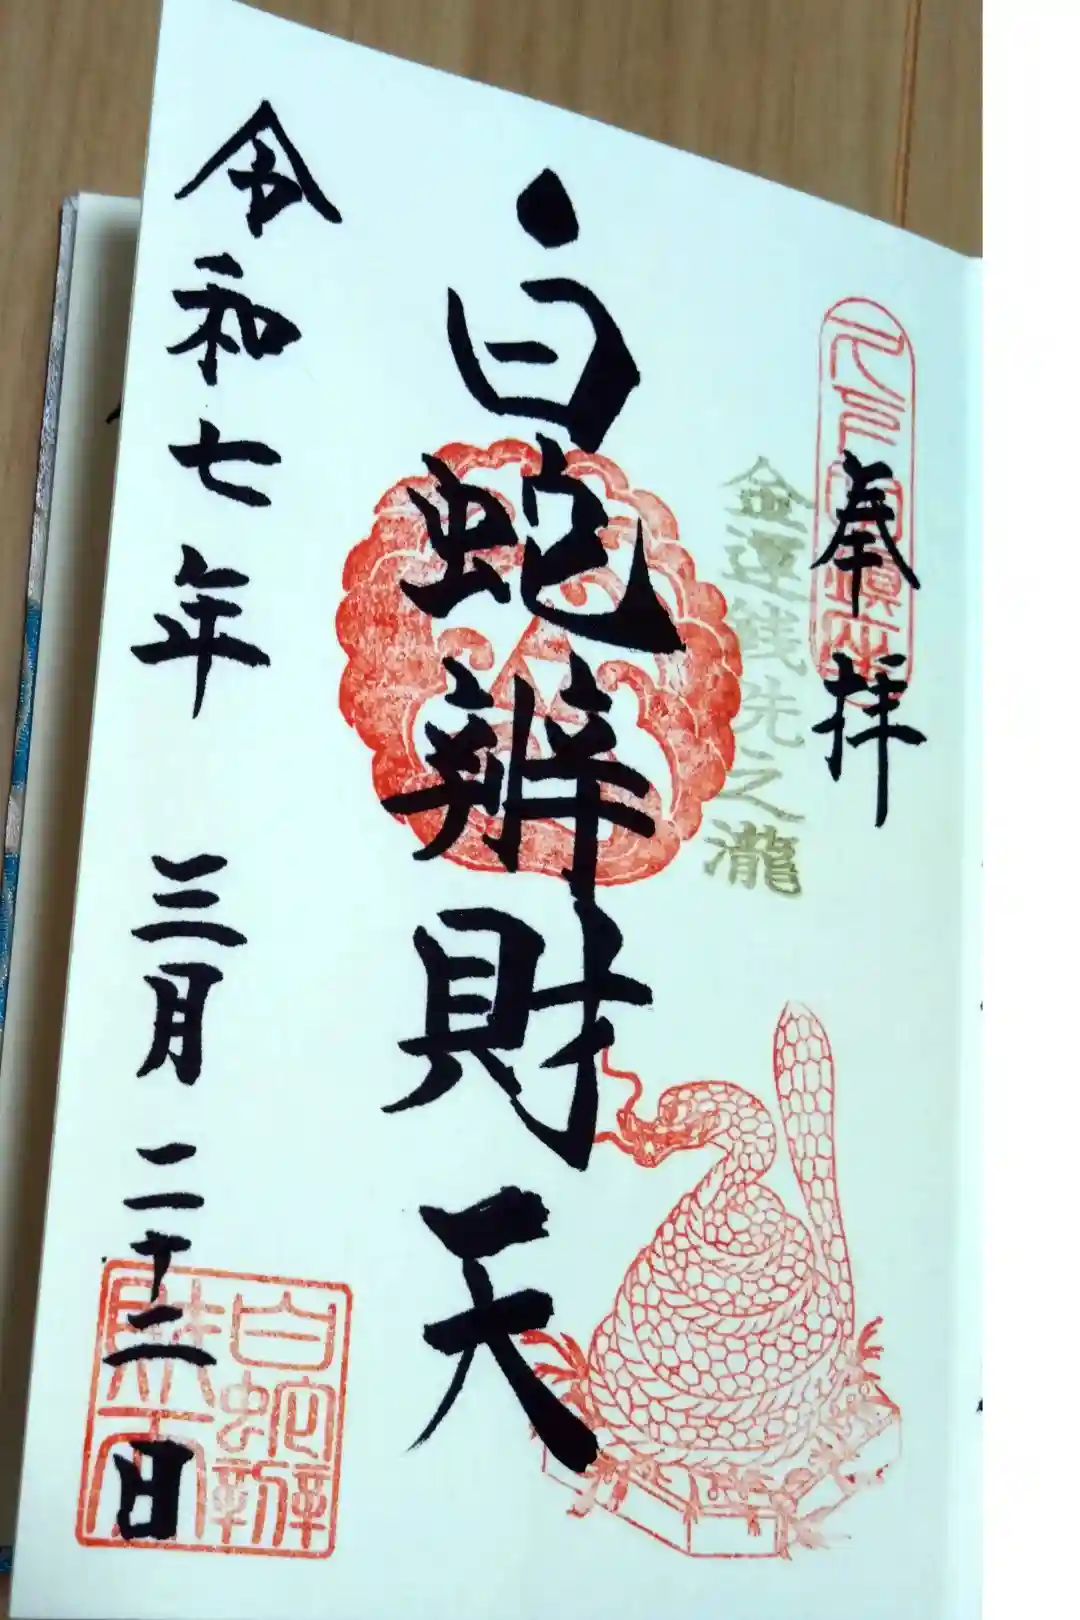 奉拝
金運銭洗之瀧
白蛇辨財天
令和七年 三月 二十二日
白蛇辨
財天